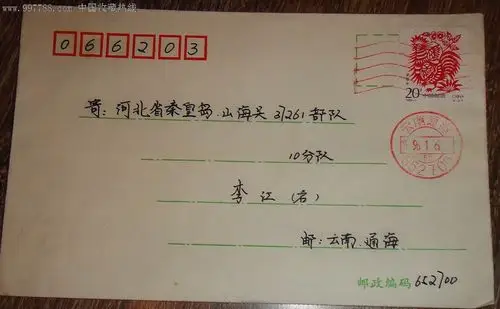 www.997788.com 中国收藏热线
066203
20分
寄：河北省秦皇岛.山海关37261部队
10分队
李江(启)
邮：云南.通海
邮政编码 652700